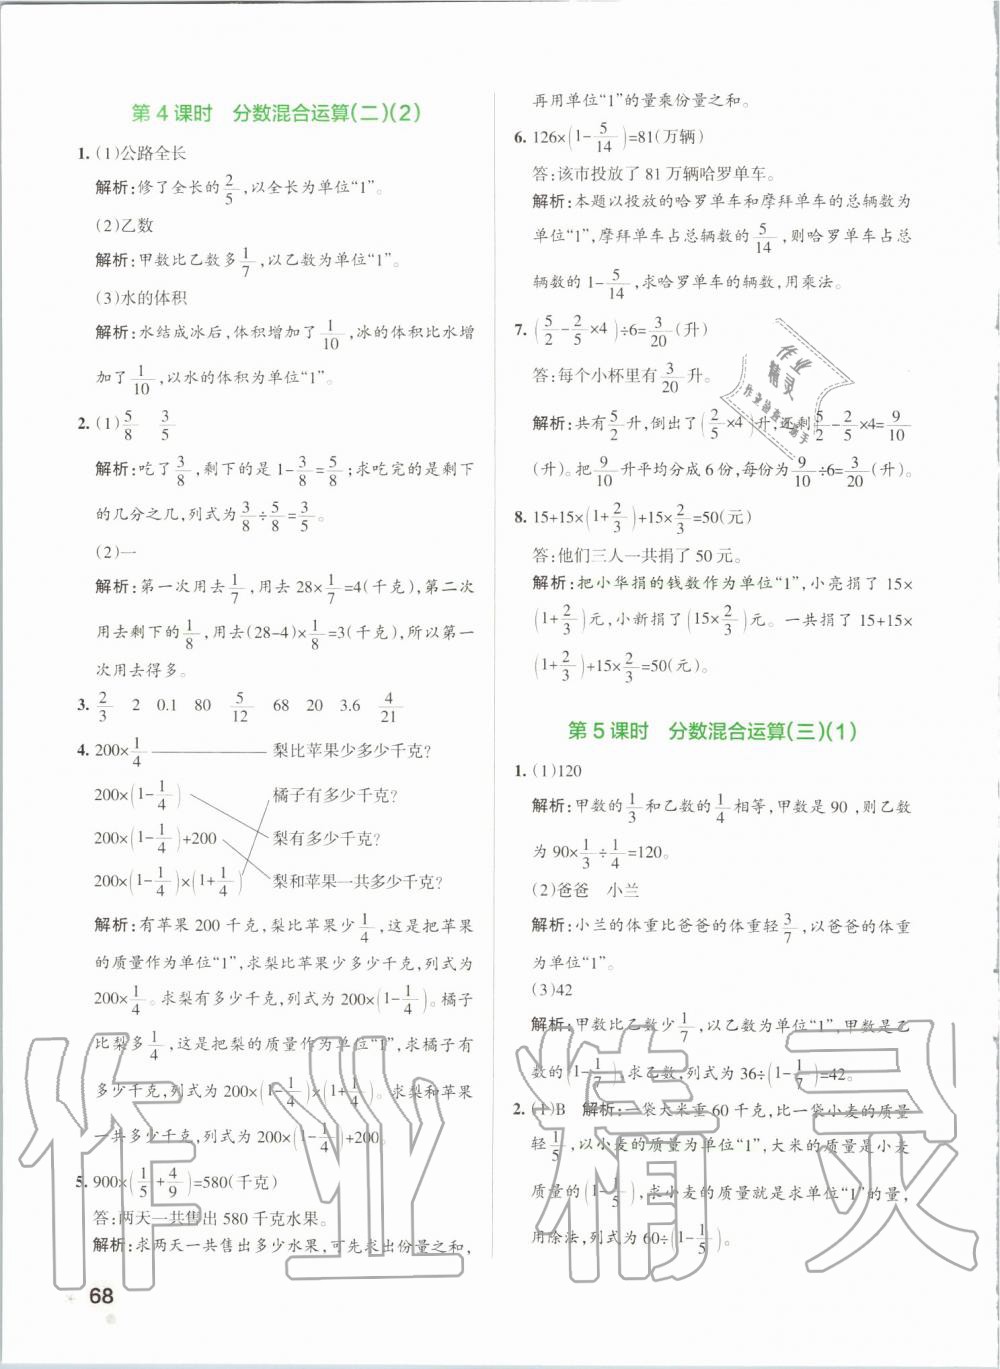 第 4 课时　分数混合运算(二)(2)
1. (1)公路全长
解析:修了全长的2/5,以全长为单位“1”。
(2)乙数
解析:甲数比乙数多1/7,以乙数为单位“1”。
(3)水的体积
解析:水结成冰后,体积增加了1/10,冰的体积比水增
加了1/10,以水的体积为单位“1”。
2. (1)5/8　3/5
解析:吃了3/8,剩下的是1-3/8=5/8;求吃完的是剩下
的几分之几,列式为3/8÷5/8=3/5。
(2)一
解析:第一次用去1/7,用去28×1/7=4(千克),第二次
用去剩下的1/8,用去(28-4)×1/8=3(千克),所以第一
次用去得多。
3. 2/3　2　0.1　80　5/12　68　20　3.6　4/21
4. 200×1/4　梨比苹果少多少千克?
200×(1-1/4)　橘子有多少千克?
200×(1-1/4)+200　梨有多少千克?
200×(1-1/4)×(1+1/4)　梨和苹果一共多少千克?
解析:有苹果 200 千克,梨比苹果少1/4,这是把苹果
的质量作为单位“1”,求梨比苹果少多少千克,列式为
200×1/4。求梨有多少千克,列式为 200×(1-1/4)。橘子
比梨多1/4,这是把梨的质量作为单位“1”,求橘子有
多少千克,列式为 200×(1-1/4)×(1+1/4)。求梨和苹果
一共多少千克,列式为 200×(1-1/4)+200。
5. 900×(1/5+4/9)=580(千克)
答:两天一共售出 580 千克水果。
解析:求两天一共售出多少水果,可先求出份量之和,
68
再用单位“1”的量乘份量之和。
6. 126×(1-5/14)=81(万辆)
答:该市投放了 81 万辆哈罗单车。
解析:本题以投放的哈罗单车和摩拜单车的总辆数为
单位“1”,摩拜单车占总辆数的5/14,则哈罗单车占总
辆数的 1-5/14,求哈罗单车的辆数,用乘法。
7. (5/2-2/5×4)÷6=3/20(升)
答:每个小杯里有3/20升。
解析:共有5/2升,倒出了(2/5×4)升,还剩5/2-2/5×4=9/10
(升)。把9/10升平均分成 6 份,每份为9/10÷6=3/20(升)。
8. 15+15×(1+2/3)+15×2/3=50(元)
答:他们三人一共捐了 50 元。
解析:把小华捐的钱数作为单位“1”,小亮捐了 15×
(1+2/3)元,小新捐了(15×2/3)元。一共捐了 15+15×
(1+2/3)+15×2/3=50(元)。
第 5 课时　分数混合运算(三)(1)
1. (1)120
解析:甲数的1/3和乙数的1/4相等,甲数是 90,则乙数
为 90×1/3÷1/4=120。
(2)爸爸　小兰
解析:小兰的体重比爸爸的体重轻3/7,以爸爸的体重
为单位“1”。
(3)42
解析:甲数比乙数少1/7,以乙数为单位“1”,甲数是乙
数的(1-1/7),求乙数,列式为 36÷(1-1/7)=42。
2. (1)B　解析:一袋大米重 60 千克,比一袋小麦的质量
轻1/5,以小麦的质量为单位“1”,大米的质量是小麦
质量的(1-1/5),求小麦的质量就是求单位“1”的量,
用除法,列式为 60÷(1-1/5)。
作业精灵
作业
精灵